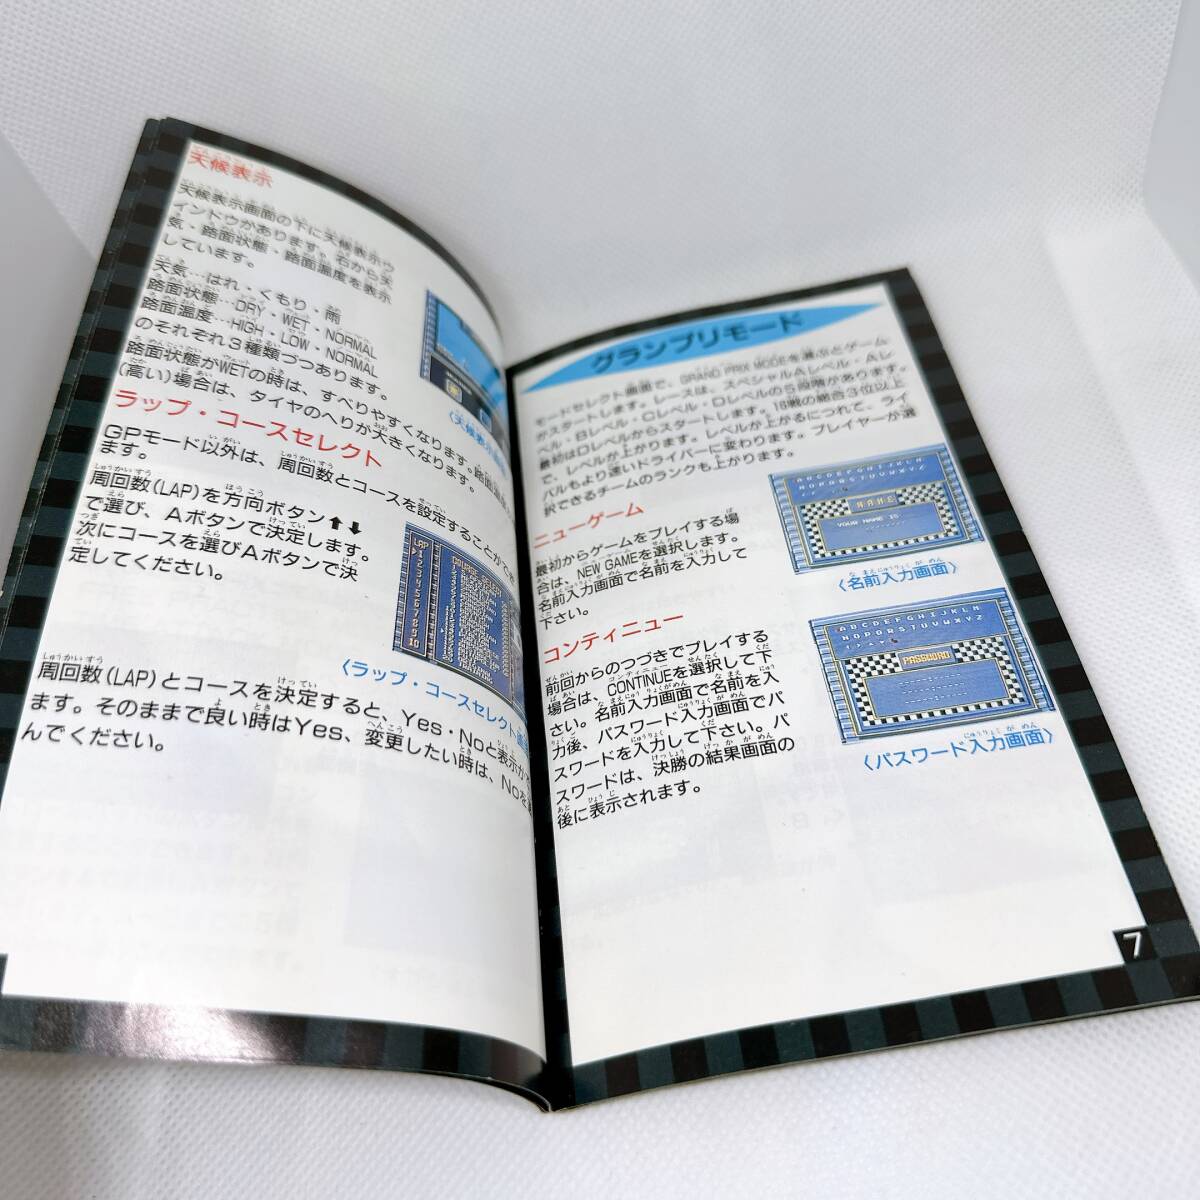 天候表示
天候表示画面の下に天候表示ウ
インドウがあります。右から天
気・路面状態・路面温度を表示
しています。
天気…はれ・くもり・雨
路面状態…DRY・WET・NORMAL
路面温度…HIGH・LOW・NORMAL
のそれぞれ3種類づつあります。
路面状態がWETの時は、すべりやすくなります。路面温度
(高い)場合は、タイヤのへりが大きくなります。
〈天候表示画
ラップ・コースセレクト
GPモード以外は、周回数とコースを設定することができ
ます。
周回数(LAP)を方向ボタン⬆⬇
で選び、Aボタンで決定します。
次にコースを選びAボタンで決
定してください。
LAP
COURSE SELECT
1
2
3
4
5
6
7
8
9
10
〈ラップ・コースセレクト画
周回数(LAP)とコースを決定すると、Yes・Noと表示が
ます。そのままで良い時はYes、変更したい時は、Noを
んでください。
グランプリモード
モードセレクト画面で、GRAND PRIX MODEを選ぶとゲーム
がスタートします。レースは、スペシャルAレベル・Aレ
ベル・Bレベル・Cレベル・Dレベルの5段階があります。
最初はDレベルからスタートします。16戦の総合3位以上
で、レベルが上がります。レベルが上がるにつれて、ライ
バルもより速いドライバーに変わります。プレイヤーが選
択できるチームのランクも上がります。
ニューゲーム
最初からゲームをプレイする場
合は、NEW GAMEを選択します。
名前入力画面で名前を入力して
下さい。
ABCDEFGHIJKLM
NOPQRSTUVWXYZ
NAME
YOUR NAME IS
〈名前入力画面〉
コンティニュー
前回からのつづきでプレイする
場合は、CONTINUEを選択して下
さい。名前入力画面で名前を入
力後、パスワード入力画面でパ
スワードを入力して下さい。パ
スワードは、決勝の結果画面の
後に表示されます。
ABCDEFGHIJKLM
NOPQRSTUVWXYZ
PASSWORD
〈パスワード入力画面〉
7